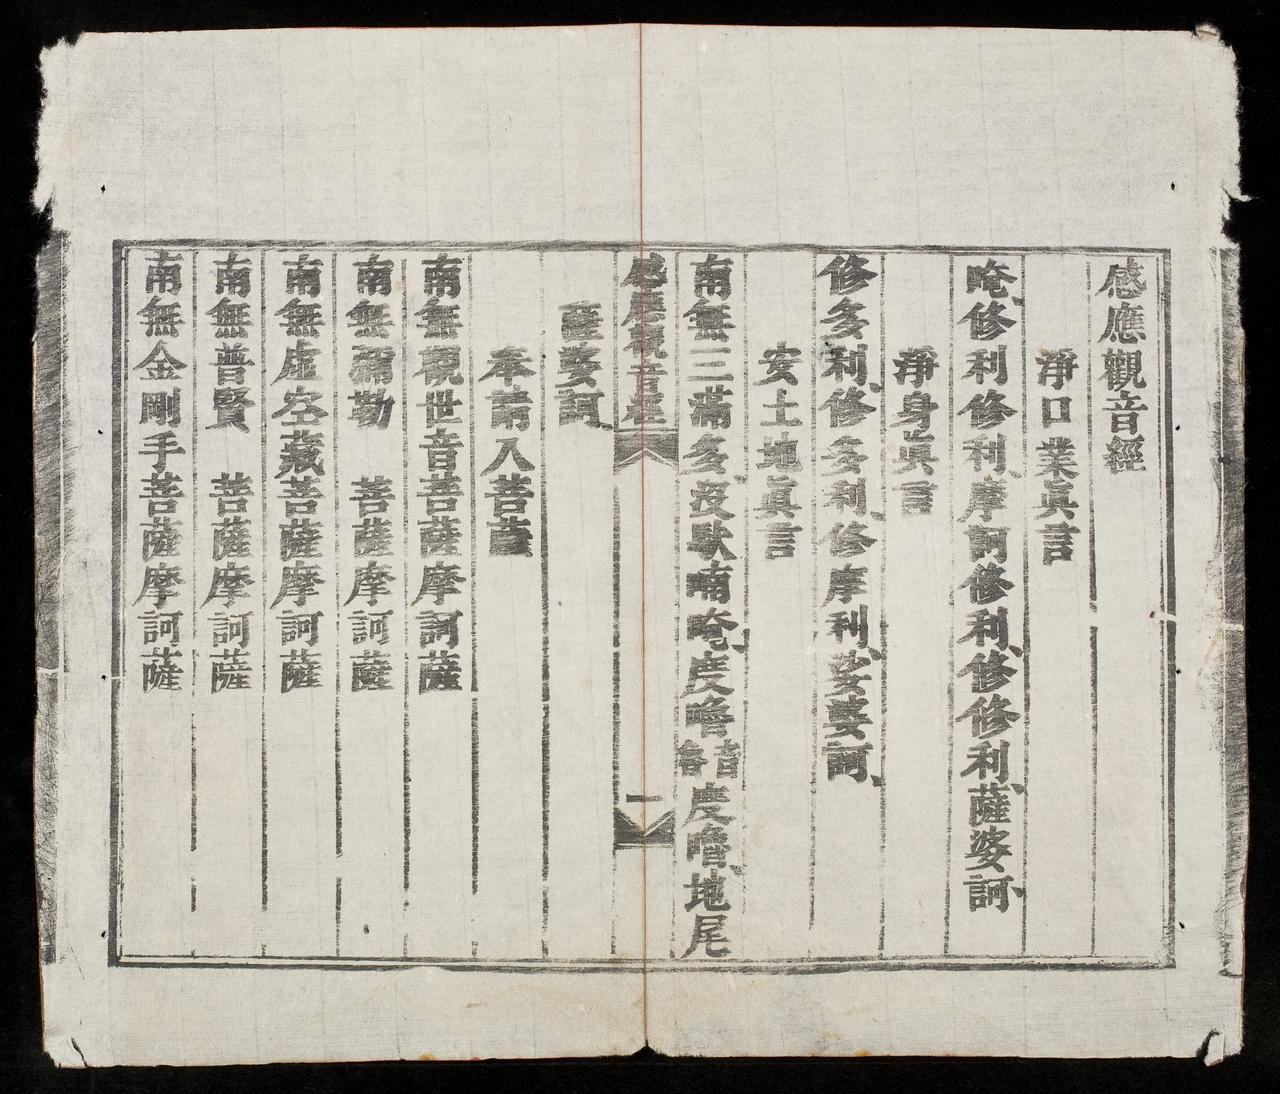 感應觀音經
淨口業眞言
唵、修利修利、摩訶修利、修修利、薩婆訶、
淨身眞言
修多利、修多利、修摩利、娑婆訶、
安土地眞言
南無三滿多、沒馱喃唵、度嚕度嚕、地尾
感應觀音經 一
薩婆訶、
奉請八菩薩
南無觀世音菩薩摩訶薩
南無彌勒 菩薩摩訶薩
南無虛空藏菩薩摩訶薩
南無普賢 菩薩摩訶薩
南無金剛手菩薩摩訶薩